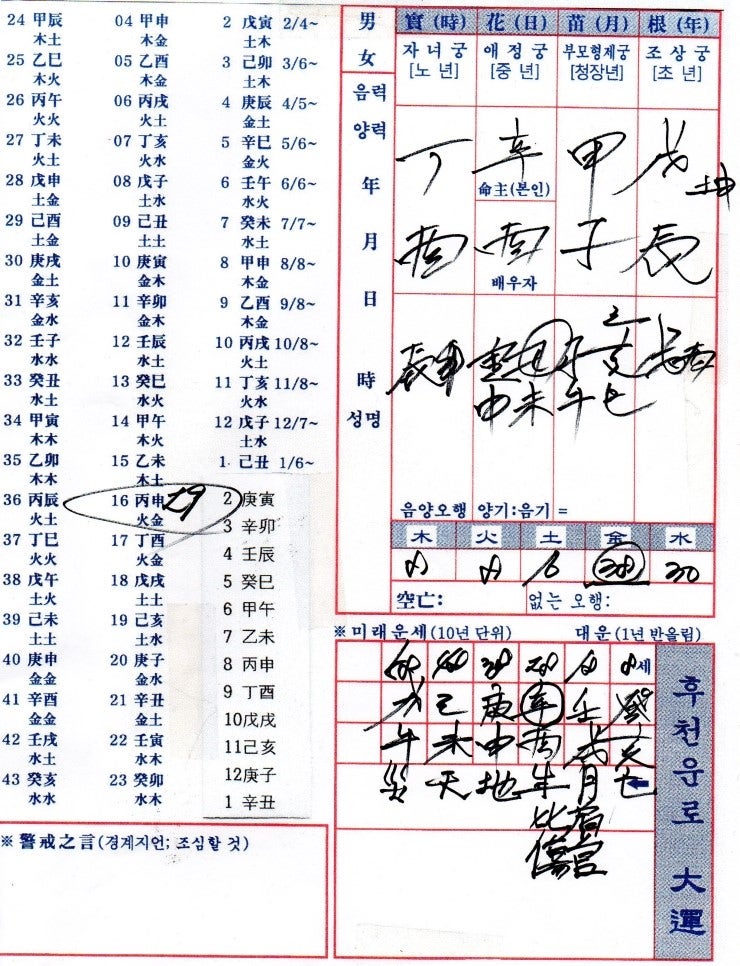 24 甲辰 04 甲申 2 戊寅 2/4~
木土 木金 土木
25 乙巳 05 乙酉 3 己卯 3/6~
木火 木金 土木
26 丙午 06 丙戌 4 庚辰 4/5~
火火 火土 金土
27 丁未 07 丁亥 5 辛巳 5/6~
火土 火水 金火
28 戊申 08 戊子 6 壬午 6/6~
土金 土水 水火
29 己酉 09 己丑 7 癸未 7/7~
土金 土土 水土
30 庚戌 10 庚寅 8 甲申 8/8~
金土 金木 木金
31 辛亥 11 辛卯 9 乙酉 9/8~
金水 金木 木金
32 壬子 12 壬辰 10 丙戌 10/8~
水水 水土 火土
33 癸丑 13 癸巳 11 丁亥 11/8~
水土 水火 火水
34 甲寅 14 甲午 12 戊子 12/7~
木木 木火 土水
35 乙卯 15 乙未 1 己丑 1/6~
木木 木土
36 丙辰 16 丙申 29 2 庚寅
火土 火金 3 辛卯
37 丁巳 17 丁酉 4 壬辰
火火 火金
38 戊午 18 戊戌 5 癸巳
土火 土土 6 甲午
39 己未 19 己亥 7 乙未
土土 土水
40 庚申 20 庚子 8 丙申
金金 金水 9 丁酉
41 辛酉 21 辛丑 10 戊戌
金金 金土
42 壬戌 22 壬寅 11 己亥
水土 水木 12 庚子
43 癸亥 23 癸卯 1 辛丑
水水 水木
※ 警戒之言(경계지언; 조심할 것)
男 女
음력
양력
年
月
日
時
성명
實(時) 花(日) 苗(月) 根(年)
자녀궁 애정궁 부모형제궁 조상궁
[노년] [중년] [청장년] [초년]
丁 辛 甲 戊
命主(본인)
酉 酉 子 辰
배우자
申 未 午 巳
음양오행 양기:음기 =
木 火 土 金 水
8 8 16 38 30
空亡: 없는 오행:
※ 미래운세(10년 단위) 대운(1년 반올림)
48 38 28 18 8세
己 庚 辛 壬 癸
午 未 申 酉 戌 亥
災 天 地 年 月 亡
比肩
傷官
후천운로 大運